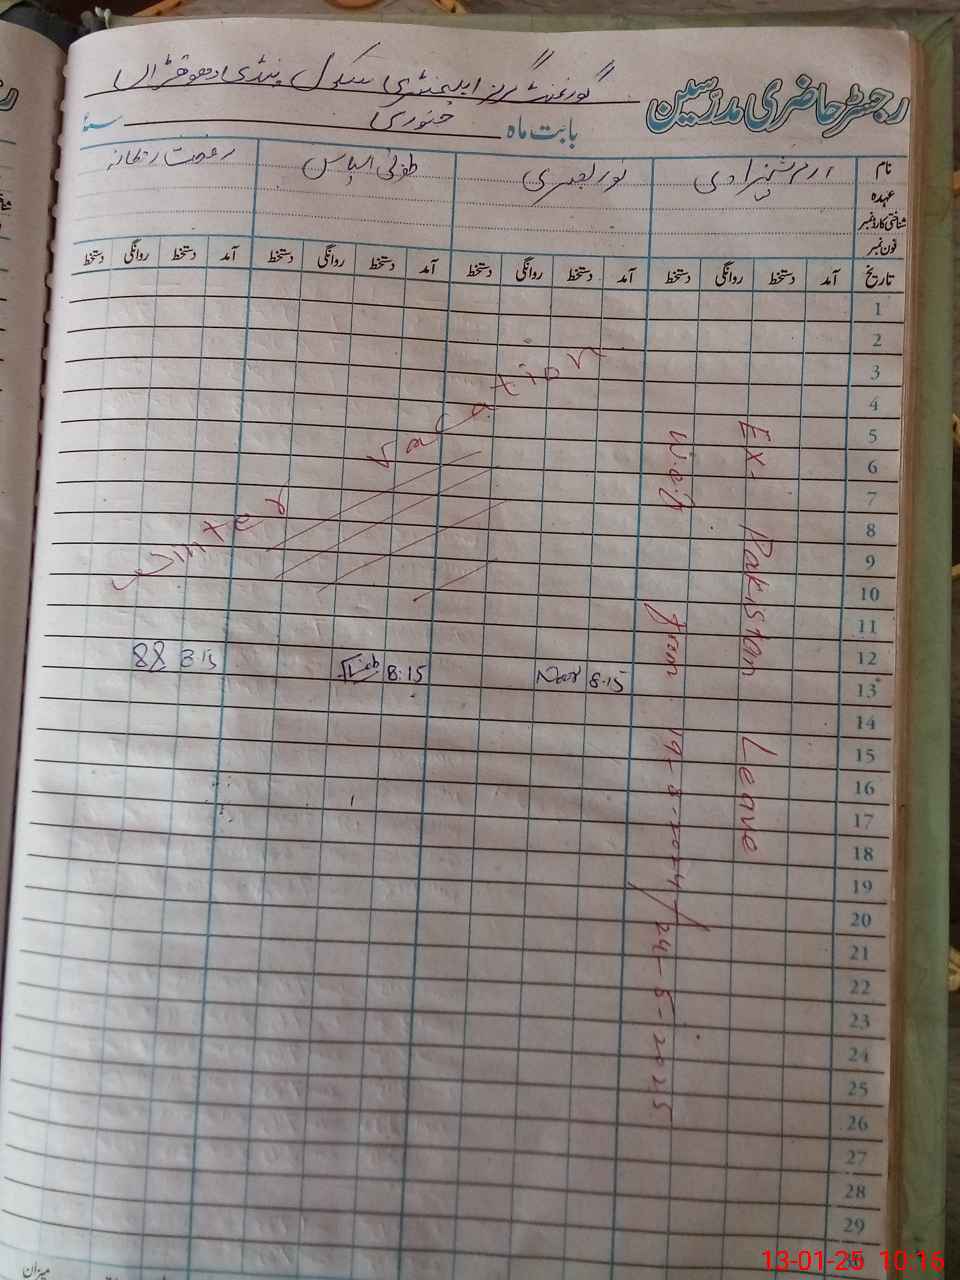 رجسٹر حاضری مدرسین گورنمنٹ گرلز ایلیمنٹری سکول پنڈی
بابت ماہ جنوری سنہ
نام ارم شہزادی نور بصری طوبیٰ الیاس رفعت ریحانہ
عہدہ
شناختی کارڈ نمبر
فون نمبر
تاریخ آمد دستخط روانگی دستخط آمد دستخط روانگی دستخط آمد دستخط روانگی دستخط آمد دستخط روانگی دستخط
1
2
3
4
5
6
7
8
9
10
11
12
13 8:15 Noor 8:15 8:15
14
15
16
17
18
19
20
21
22
23
24
25
26
27
28
29
30
Winter Vacation
Ex- Pakistan Leave
w.e.f from 19-8-2024/24-5-2025
میزان
13-01-25 10:16